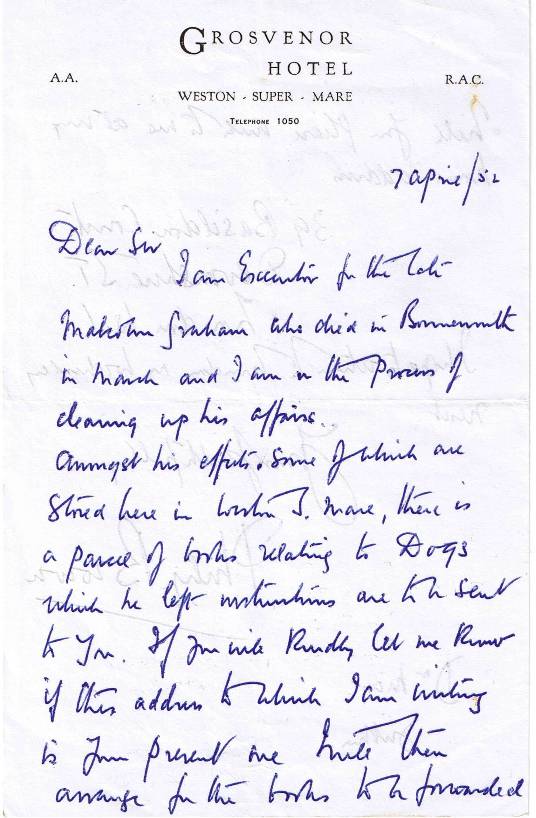 GROSVENOR
HOTEL
A.A.
R.A.C.
WESTON - SUPER - MARE
TELEPHONE 1050
7 April/52
Dear Sir
I am Executor for the late
Malcolm Graham who died in Bournemouth
in March and I am in the Process of
clearing up his affairs.
Amongst his effects, some of which are
stored here in Weston S. Mare, there is
a parcel of books relating to Dogs
which he left instructions are to be sent
to you. If you will Kindly let me Know
if this address to which I am writing
is your present one I will then
arrange for the books to be forwarded